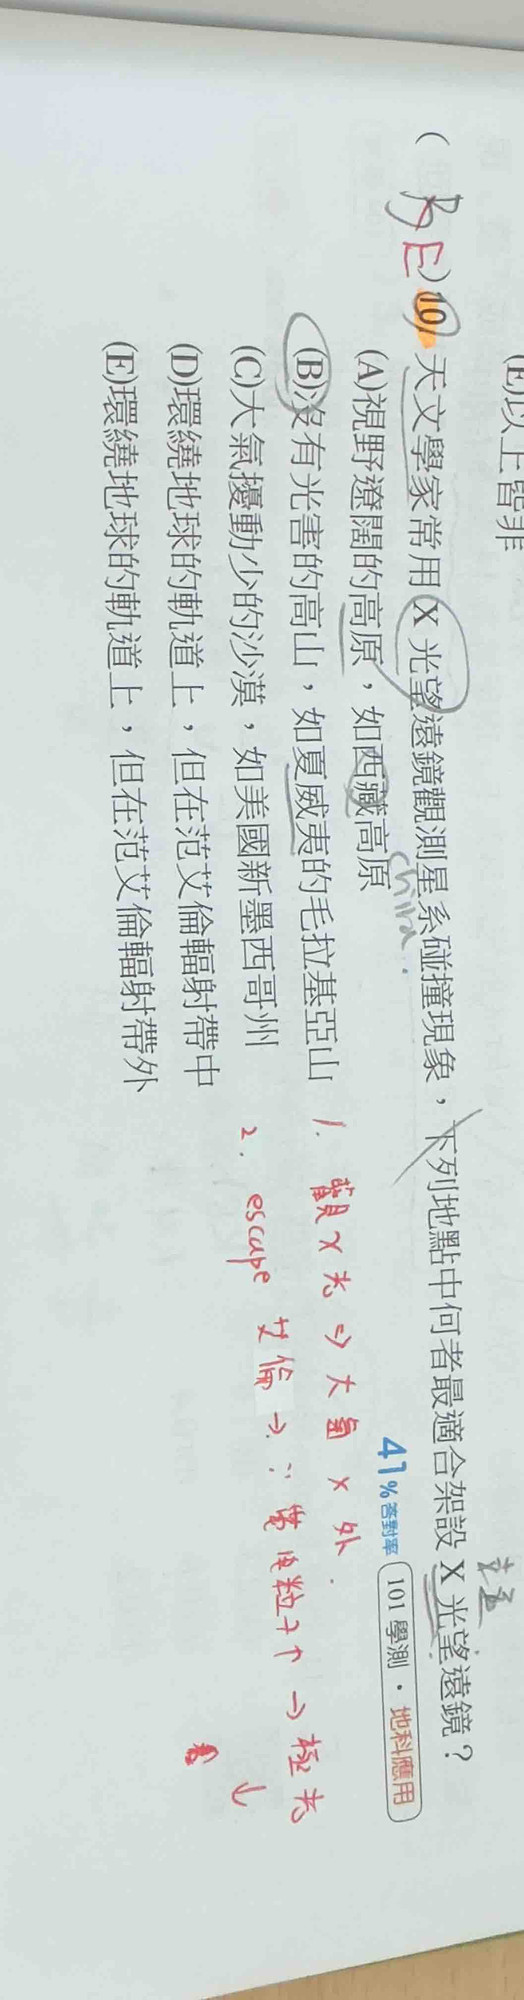 (E)以上皆非
( B E ) 10. 天文學家常用 X 光望遠鏡觀測星系碰撞現象，下列地點中何者最適合架設 X 光望遠鏡？
china
41%答對率 101 學測・地科應用
(A)視野遼闊的高原，如西藏高原
(B)沒有光害的高山，如夏威夷的毛拉基亞山
(C)大氣擾動少的沙漠，如美國新墨西哥州
(D)環繞地球的軌道上，但在范艾倫輻射帶中
(E)環繞地球的軌道上，但在范艾倫輻射帶外
1. 觀 X 光 ⇒ 大氣 X 外.
2. escape 艾倫 → ∵ 帶電粒子↑ → 極光
↓